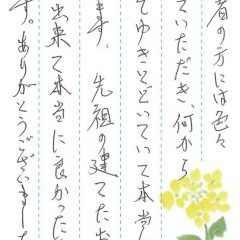 者の方には色々
ていただき、何から
てゆきとどいていて本当し
ます。 先祖の建てたお
出来て本当に良かったい
す。ありがとうございました